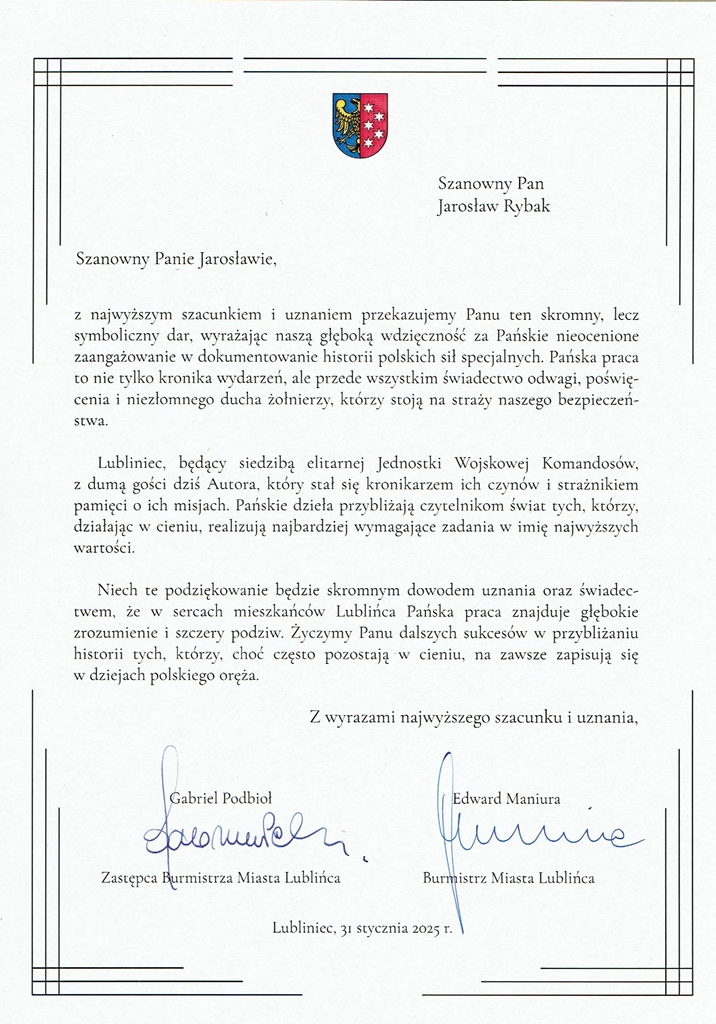 Szanowny Pan
Jarosław Rybak
Szanowny Panie Jarosławie,
z najwyższym szacunkiem i uznaniem przekazujemy Panu ten skromny, lecz
symboliczny dar, wyrażając naszą głęboką wdzięczność za Pańskie nieocenione
zaangażowanie w dokumentowanie historii polskich sił specjalnych. Pańska praca
to nie tylko kronika wydarzeń, ale przede wszystkim świadectwo odwagi, poświę-
cenia i niezłomnego ducha żołnierzy, którzy stoją na straży naszego bezpieczeń-
stwa.
Lubliniec, będący siedzibą elitarnej Jednostki Wojskowej Komandosów,
z dumą gości dziś Autora, który stał się kronikarzem ich czynów i strażnikiem
pamięci o ich misjach. Pańskie dzieła przybliżają czytelnikom świat tych, którzy,
działając w cieniu, realizują najbardziej wymagające zadania w imię najwyższych
wartości.
Niech te podziękowanie będzie skromnym dowodem uznania oraz świadec-
twem, że w sercach mieszkańców Lublińca Pańska praca znajduje głębokie
zrozumienie i szczery podziw. Życzymy Panu dalszych sukcesów w przybliżaniu
historii tych, którzy, choć często pozostają w cieniu, na zawsze zapisują się
w dziejach polskiego oręża.
Z wyrazami najwyższego szacunku i uznania,
Gabriel Podbioł
Edward Maniura
Zastępca Burmistrza Miasta Lublińca
Burmistrz Miasta Lublińca
Lubliniec, 31 stycznia 2025 r.